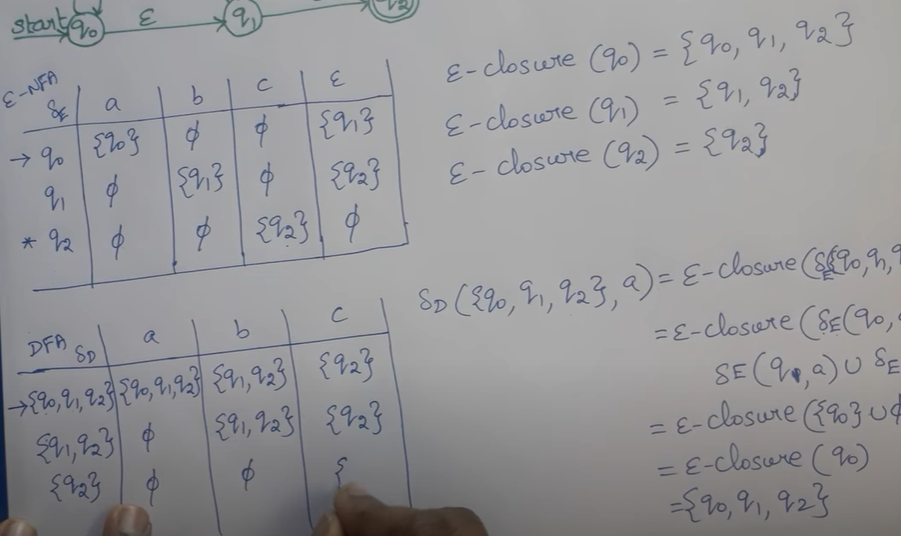 start q0 ε q1 q2
ε-NFA δE a b c ε
→ q0 {q0} ϕ ϕ {q1}
q1 ϕ {q1} ϕ {q2}
* q2 ϕ ϕ {q2} ϕ
ε-closure (q0) = {q0, q1, q2}
ε-closure (q1) = {q1, q2}
ε-closure (q2) = {q2}
DFA δD a b c
→{q0,q1,q2} {q0,q1,q2} {q1,q2} {q2}
{q1,q2} ϕ {q1,q2} {q2}
{q2} ϕ ϕ {
δD ({q0, q1, q2}, a) = ε-closure (δE({q0, q1, q
= ε-closure (δE(q0,
δE (q1, a) ∪ δE
= ε-closure ({q0} ∪ ϕ
= ε-closure (q0)
= {q0, q1, q2}